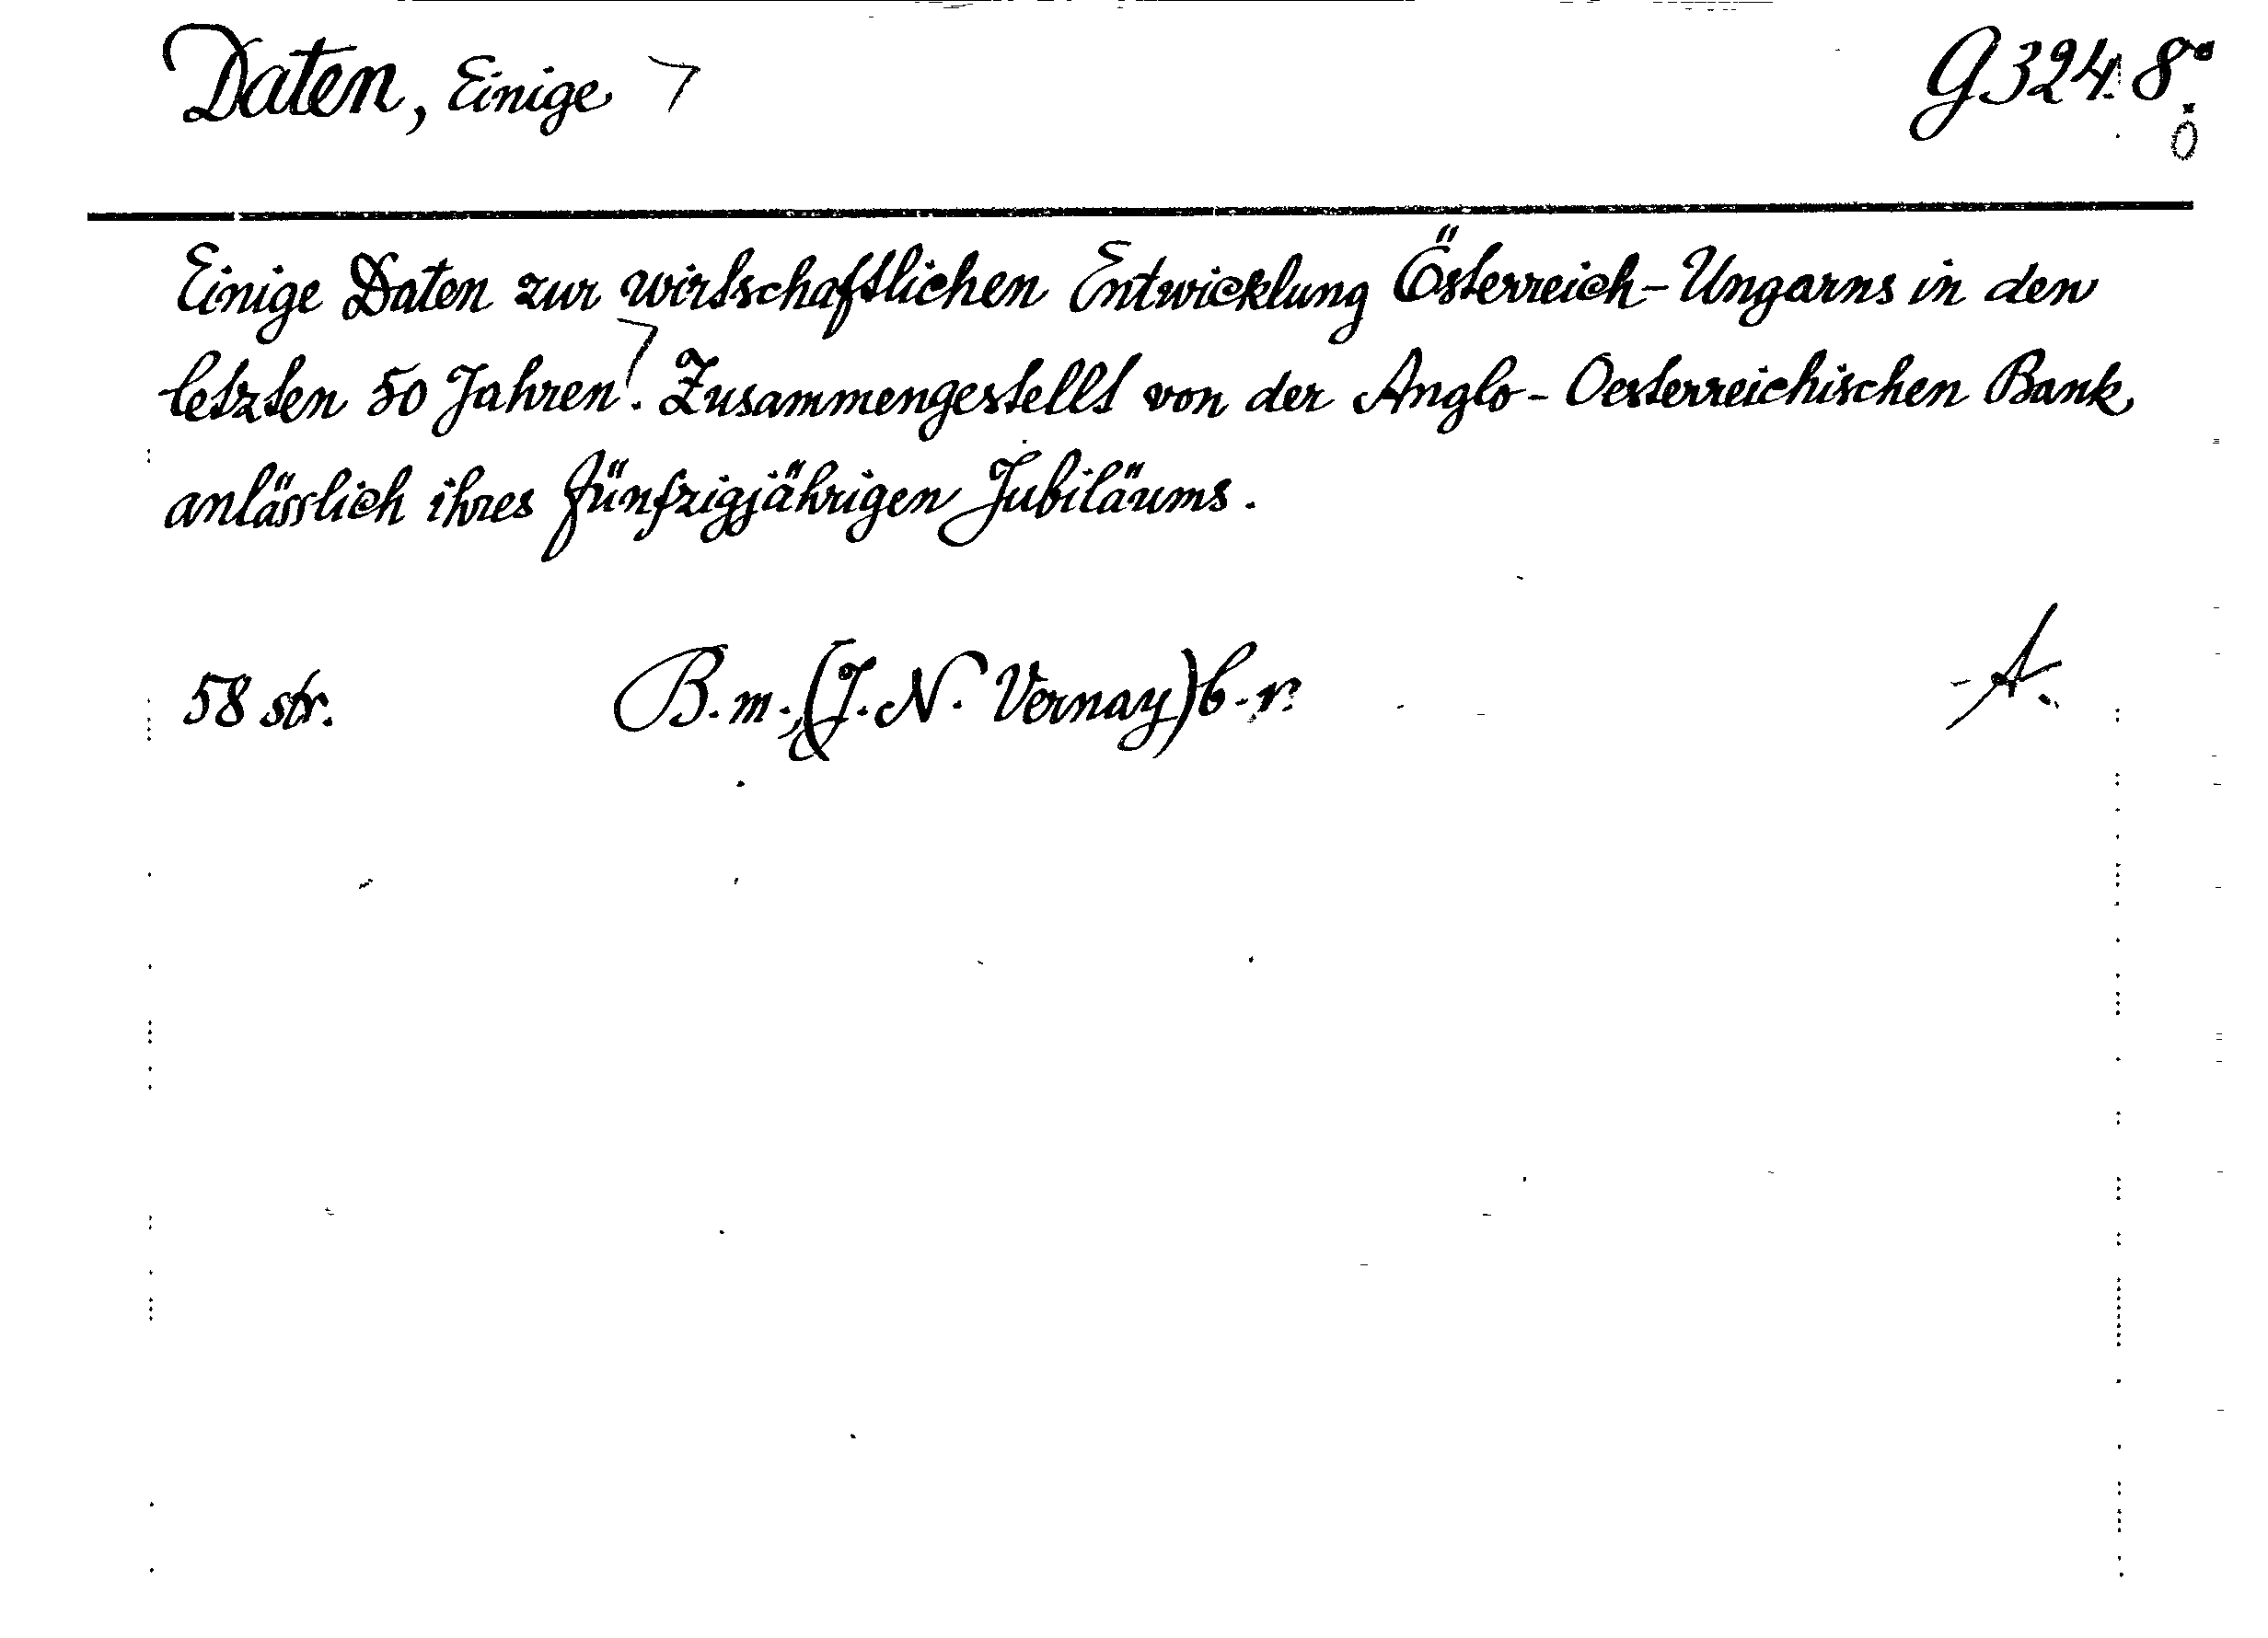 Daten, Einige G324. 8°
Einige Daten zur wirtschaftlichen Entwicklung Österreich-Ungarns in den
letzten 50 Jahren. Zusammengestellt von der Anglo-Oesterreichischen Bank
anlässlich ihres fünfzigjährigen Jubiläums.
58 str. B.m., (J. N. Vernay) b.r. A.